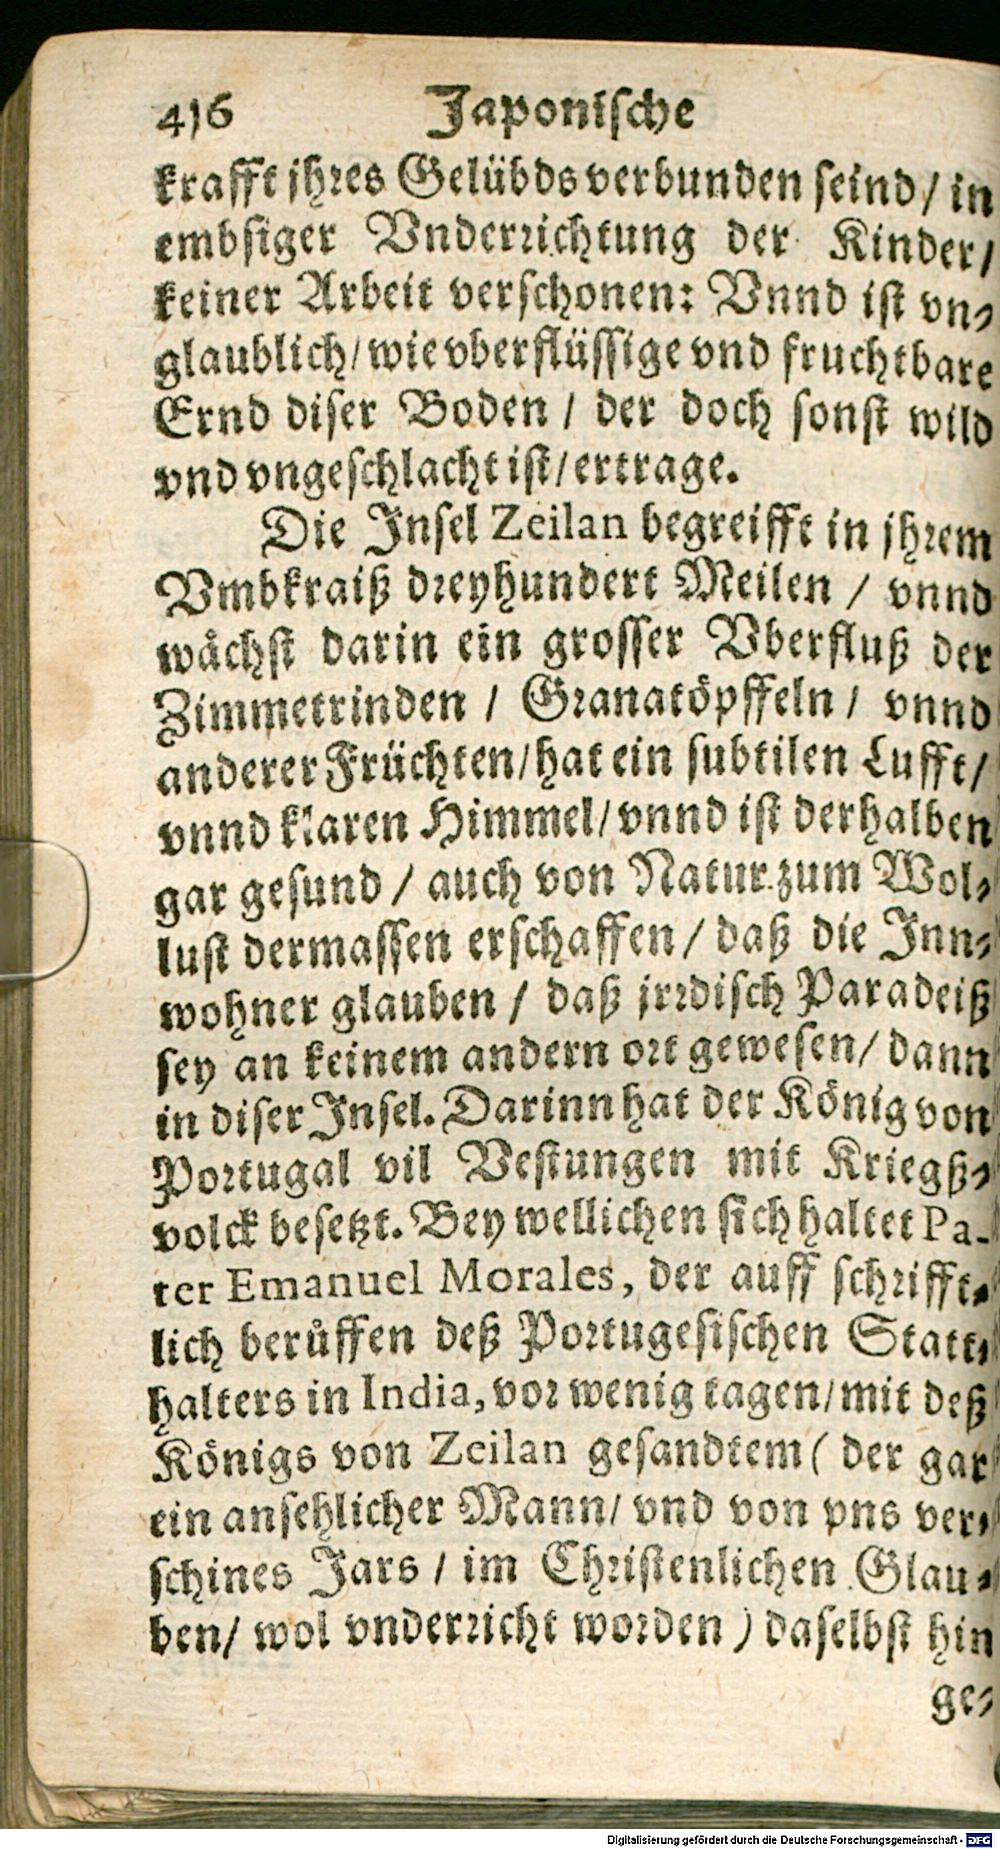 416 Japonische
krafft jhres Gelübds verbunden seind / in
embsiger Vnderrichtung der Kinder /
keiner Arbeit verschonen: Vnnd ist vn⸗
glaublich / wie vberflüssige vnd fruchtbare
Ernd diser Boden / der doch sonst wild
vnd vngeschlacht ist / ertrage.
Die Insel Zeilan begreifft in jhrem
Vmbkraiß dreyhundert Meilen / vnnd
wächst darin ein grosser Vberfluß der
Zimmetrinden / Granatöpffeln / vnnd
anderer Früchten / hat ein subtilen Lufft /
vnnd klaren Himmel / vnnd ist derhalben
gar gesund / auch von Natur zum Wol⸗
lust dermassen erschaffen / daß die Inn⸗
wohner glauben / daß jrrdisch Paradeiß
sey an keinem andern ort gewesen / dann
in diser Insel. Darinn hat der König von
Portugal vil Vestungen mit Kriegß⸗
volck besetzt. Bey wellichen sich haltet Pa-
ter Emanuel Morales, der auff schrifft⸗
lich berůffen deß Portugesischen Statt⸗
halters in India, vor wenig tagen / mit deß
Königs von Zeilan gesandtem ( der gar
ein ansehlicher Mann / vnd von vns ver⸗
schines Jars / im Christenlichen Glau⸗
ben / wol vnderricht worden ) daselbst hin
ge⸗
Digitalisierung gefördert durch die Deutsche Forschungsgemeinschaft - DFG